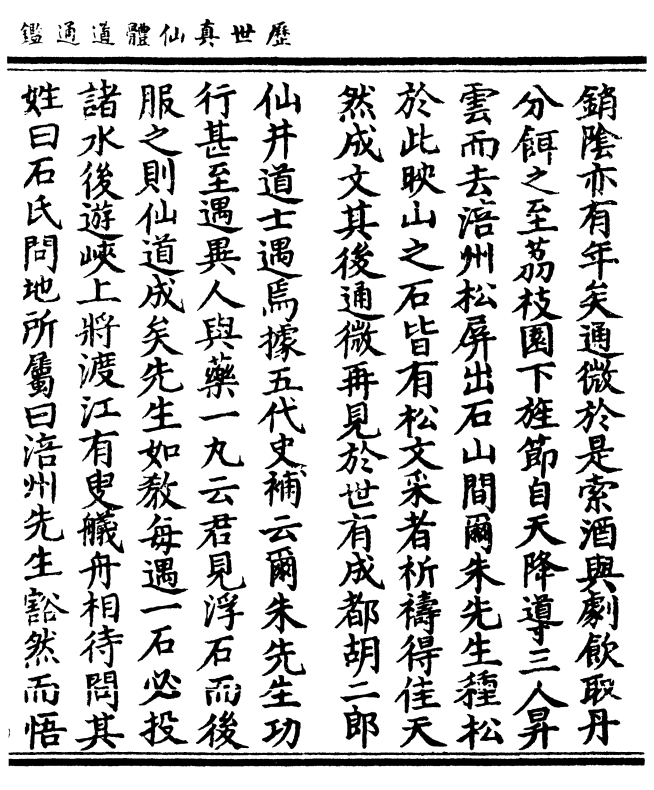 歷世真仙體道通鑑
銷陰亦有年矣通微於是索酒與劇飲取丹
分餌之至荔枝園下旌節自天降導三人昇
雲而去涪州松屏出石山間爾朱先生種松
於此映山之石皆有松文采者祈禱得佳天
然成文其後通微再見於世有成都胡二郎
仙井道士遇焉據五代史補云爾朱先生功
行甚至遇異人與藥一丸云君見浮石而後
服之則仙道成矣先生如教每遇一石必投
諸水後遊峽上將渡江有叟艤舟相待問其
姓曰石氏問地所屬曰涪州先生豁然而悟